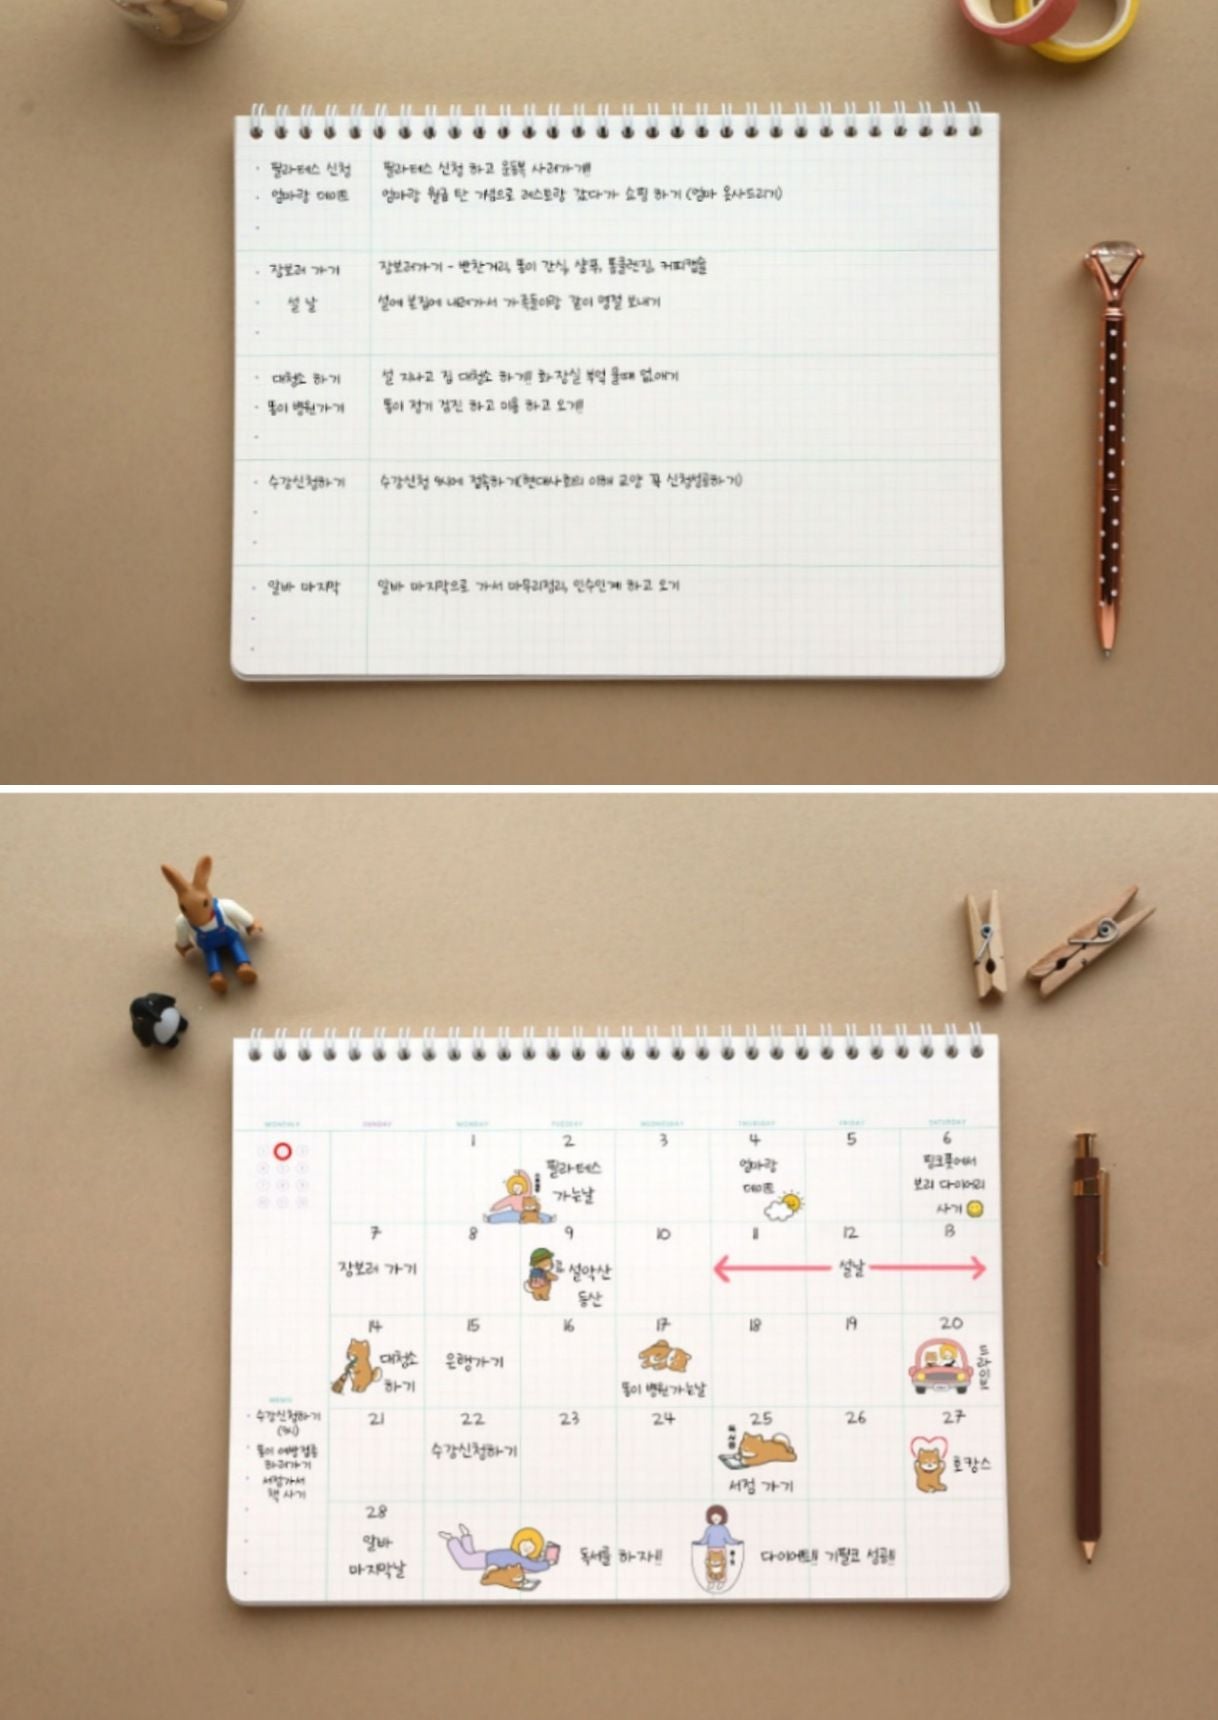 필라테스 신청 필라테스 신청 하고 운동복 사러가기!!
엄마랑 데이트 엄마랑 월급 탄 기념으로 레스토랑 갔다가 쇼핑 하기 (엄마 옷사드리기)
장보러 가기 장보러가기 - 반찬거리, 똥이 간식, 샴푸, 폼클렌징, 커피캡슐
설 날 설에 본집에 내려가서 가족들이랑 같이 명절 보내기
대청소 하기 설 지나고 집 대청소 하기!! 화장실 부엌 물때 없애기
똥이 병원가기 똥이 정기 검진 하고 미용 하고 오기!!
수강신청하기 수강신청 9시에 접속하기(현대사회의 이해 교양 꼭 신청성공하기)
알바 마지막 알바 마지막으로 가서 마무리정리, 인수인계 하고 오기
MONTHLY SUNDAY MONDAY TUESDAY WEDNESDAY THURSDAY FRIDAY SATURDAY
1 2 3 4 5 6
필라테스 엄마랑 핑크풋에서
가는날 데이트 보리 다이어리
사기
7 8 9 10 11 12 13
장보러 가기 설악산 설날
등산
14 15 16 17 18 19 20
대청소 은행가기 드라이브
하기 똥이 병원가는날
MEMO
수강신청하기 21 22 23 24 25 26 27
(9시)
똥이 예방접종 수강신청하기 호캉스
하러가기
서점가서 서점 가기
책 사기
28
알바 독서를 하자!! 다이어트!! 기필코 성공!!
마지막날